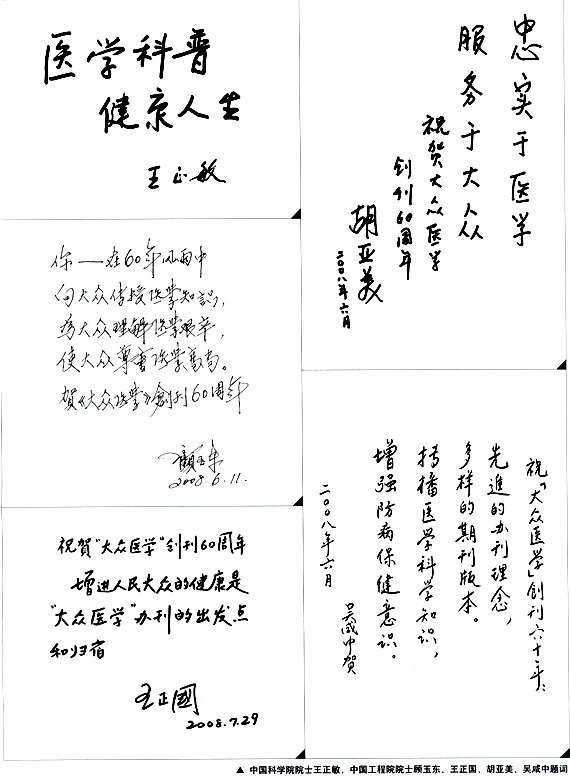 医学科普
健康人生
王正敏
忠实于医学
服务于大众
祝贺大众医学
创刊60周年
胡亚美
二〇〇八年六月
你——在60年风雨中
向大众传授医学知识,
为大众理解医学艰辛,
使大众尊重医学崇高。
贺《大众医学》創刊60周年
顾玉东
2008.6.11.
祝贺"大众医学"创刊60周年
增进人民大众的健康是
"大众医学"办刊的出发点
和归宿
王正國
2008.7.29
祝“大众医学”創刊六十年:
先進的办刊理念,
多样的期刊版本。
传播医学科学知识,
增强防病保健意识。
吴咸中贺
二〇〇八年六月
▲ 中国科学院院士王正敏、中国工程院院士顾玉东、王正国、胡亚美、吴咸中题词